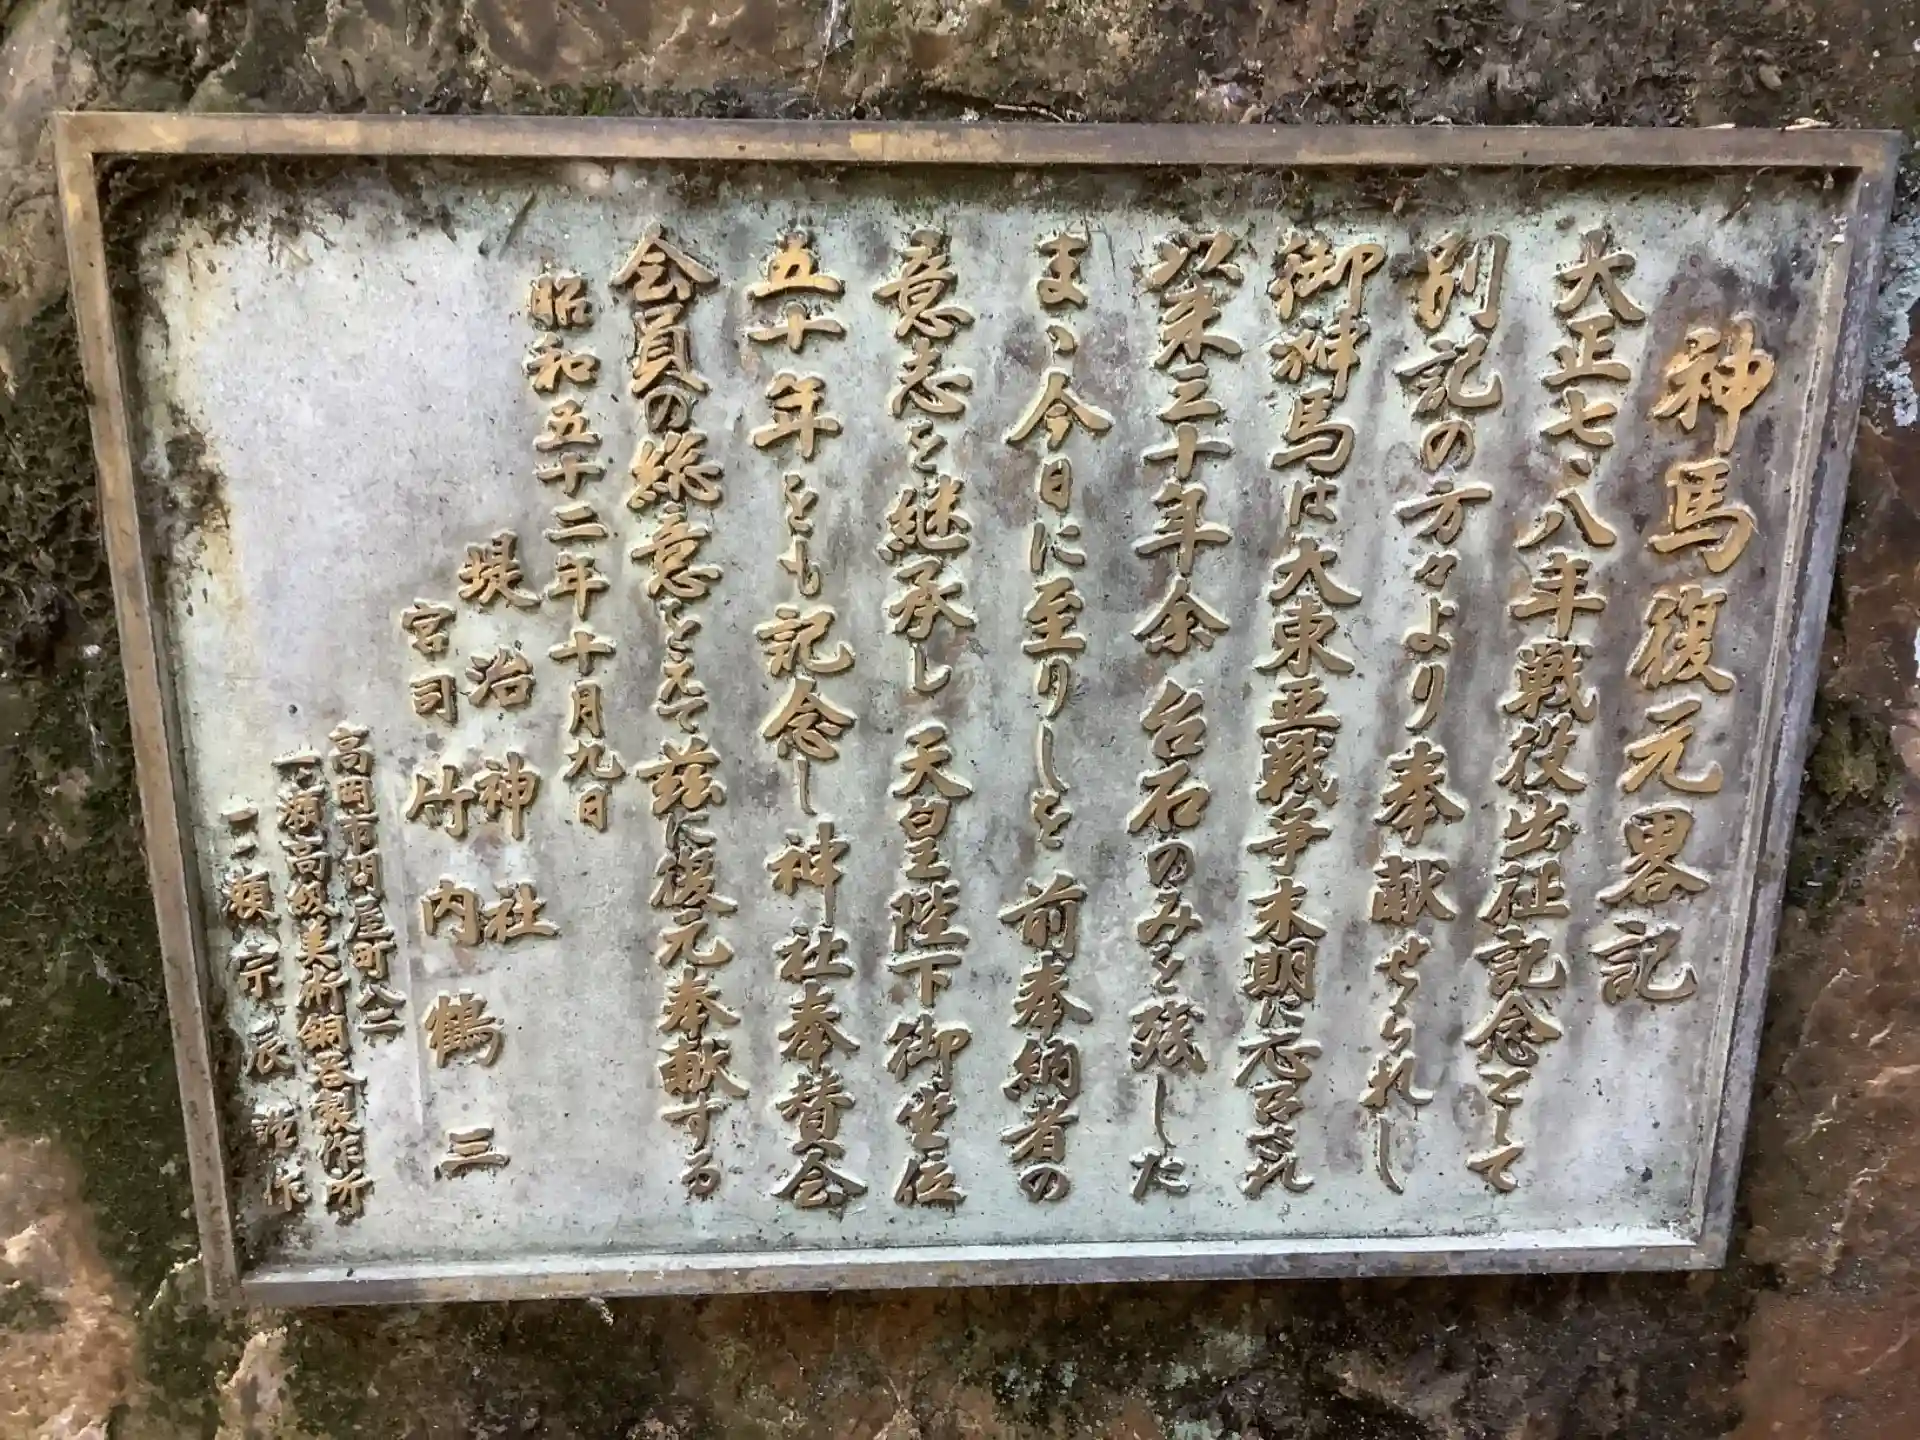 神馬復元畧記
大正七、八年戦役出征記念として
別記の方々より奉献せられし
御神馬は大東亜戦争末期に応召され
以来三十年余 台石のみを残した
まゝ今日に至りしを 前奉納者の
意志を継承し 天皇陛下御坐位
五十年をも記念し神社奉賛会
会員の総意をえて茲に復元奉献する
昭和五十二年十月九日
堤治神社
宮司 竹内鶴三
高岡市問屋町八二
一ノ瀬高級美術銅器製作所
一ノ瀬宗辰謹作